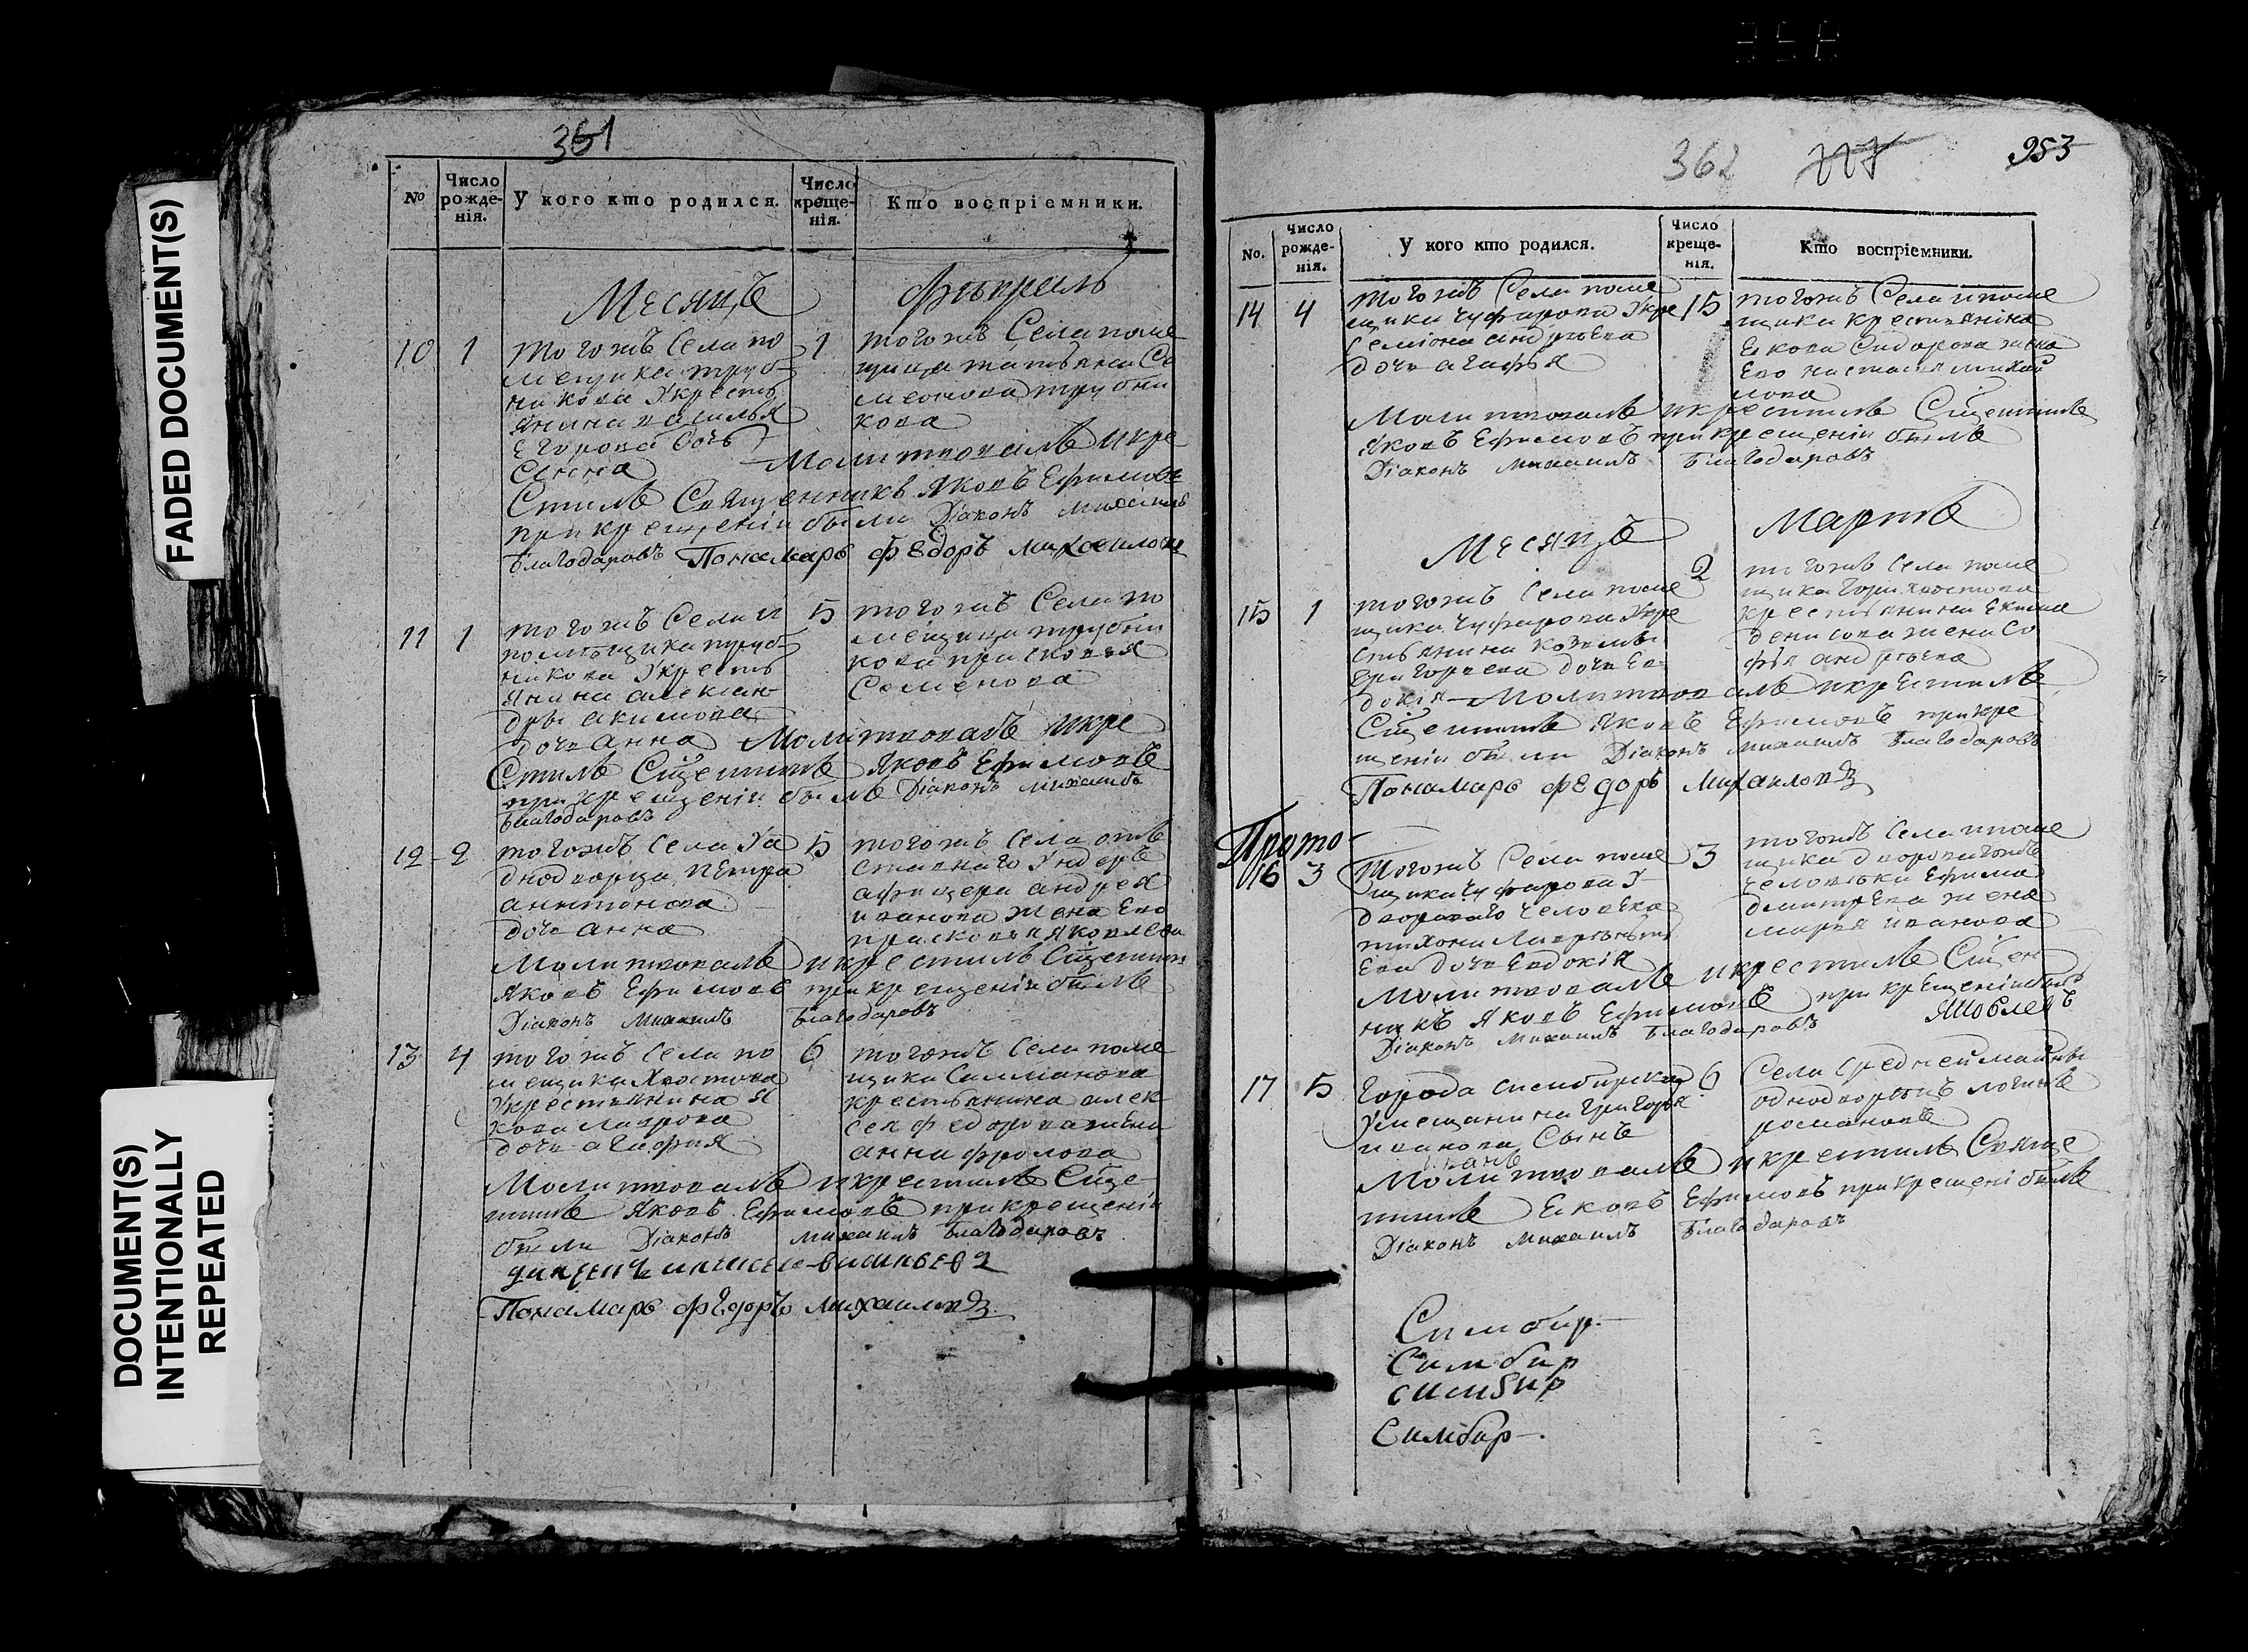 FADED DOCUMENT(S)
DOCUMENT(S)
INTENTIONALLY
REPEATED
361
№
Число рожде-нія.
У кого кто родился.
Число креще-нія.
Кто воспріемники.
Месяцъ
10
1
тогожъ Села по
мещика труб
никова Укресть
янина василья
Егорова дочь
1
тогожъ Села поме
щица татьяна Се
меонова трубни
кова
Молитвовалъ икре
Стилъ Священникъ Яковъ Ефимовъ
при крещеніи были Діаконъ михаилъ
Благодаровъ Понамарь Федоръ михаиловъ
11
1
тогожъ Села
помѣщика труб
никова Укресть
янина алексан
дры акимова
дочь Анна
5
тогожъ Села по
мещица трубни
кова прасковья
Семенова
Молитвовалъ икре
Стилъ Яковъ Ефимовъ
при крещеніи былъ Діаконъ михаилъ
Благодаровъ
12
2
тогожъ Села Уа
днодворца петра
антонова
дочь Анна
5
тогожъ Села отъ
ставнаго Ундеръ
афицера андрея
иванова жена Ево
прасковья яковлева
Молитвовалъ икрестилъ
Яковъ Ефимовъ при крещеніи былъ
Діаконъ Михаилъ Благодаровъ
13
4
тогожъ Села по
мещика Хвостова
Укрестьянина я
кова лаврова
дочь агафия
6
тогожъ Села поме
щика
крестьянина алек
сея федорова жена
анна фролова
Молитвовалъ икрестилъ
Яковъ Ефимовъ при крещеніи
были Діаконъ михаилъ Благодаровъ
Понамарь Федоръ михаиловъ
362
953
No.
Число рожде-нія.
У кого кто родился.
Число креще-нія.
Кто воспріемники.
14
4
тогожъ Села поме
щика Чуфарова Укре
Семіона андрѣева
дочь агафья
15
тогожъ Села ипоме
щика крестьянина
Екова Сидорова жена
Ево настасья михай
лова
Молитвовалъ икрестилъ
Яковъ Ефимовъ при крещеніи былъ
Діаконъ михаилъ Благодаровъ
Месяцъ
Мартъ
15
1
тогожъ Села поме
щика Чуфарова Укре
стьянина козьмы
Григорьева дочь Ев
докія
2
тогожъ Села поме
щика
крестьянина Екима
денисова жена Со
фья андрѣева
Молитвовалъ икрестилъ
Яковъ Ефимовъ при кре
щеніи были Діаконъ михаилъ Благодаровъ
Понамарь Федоръ Михаиловъ
Прото-
16
3
Тогожъ Села поме
щика Чуфарова У
двороваго человека
тихона
Ева дочь Евдокія
3
тогожъ Села ипоме
щика
человѣка Ефима
дмитрева жена
марья иванова
Молитвовалъ икрестилъ Сщен
никъ Яковъ Ефимовъ при крещеніи былъ
Діаконъ Михаилъ Благодаровъ
17
5
города симбирска
Умещанина Григорья
иванова Сынъ
иванъ
6
Села Средней майны
однодворецъ логинъ
романовъ
Молитвовалъ икрестилъ Свяще
Ековъ Ефимовъ при крещені былъ
Діаконъ Михаилъ Благодаровъ
Симбир-
Симбир
симбир
Симбир-.